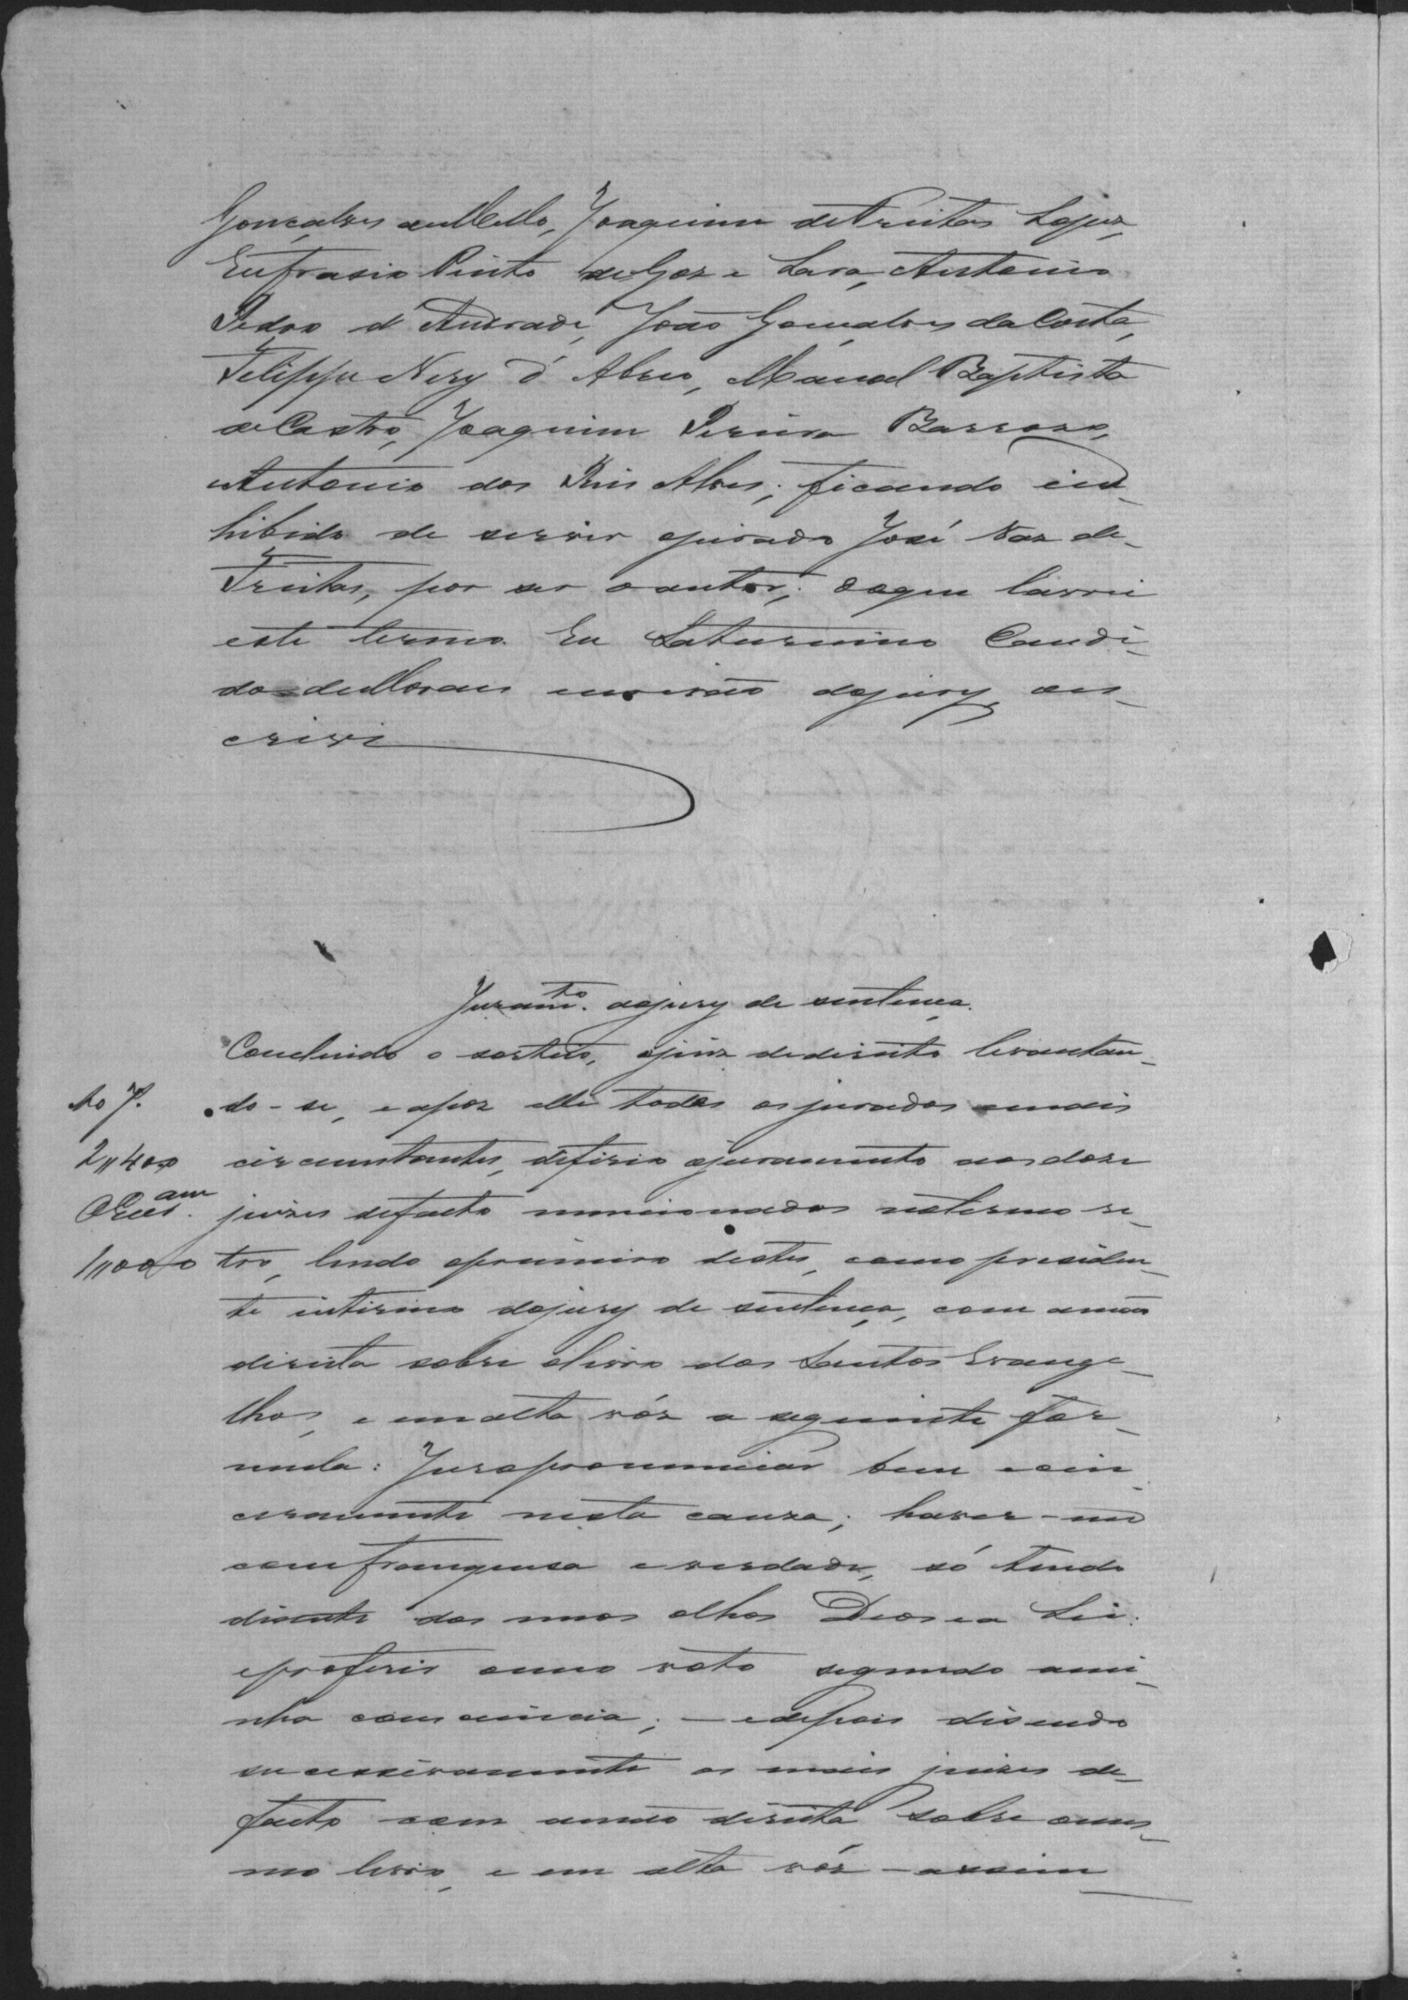 Gonçalves de Mello, Joaquim de Freitas Lopes,
Eufrasio Pinto de Goz e Lara, Antonio
Pedro d'Andrade, João Gonçalves da Costa,
Filippe Nery d'Abreu, Manoel Baptista
de Castro, Joaquim Pereira Barroso,
Antonio dos Reis Alves; ficando in-
hibido de servir ojurado José Vaz de
Freitas, por ser o autor; doque lavrei
este termo. Eu Saturnino Candi-
do de Moraes escrivão dojury, es-
crivi
Juramto. dojury de sentença.
Concluido o sorteio, ojuiz dedireito levantan-
do-se, eapoz elle todos osjurados emais
circunstantes, diferio ojuramento aos doze
juizes defacto mencionados notermo re-
tro, lendo oprimeiro destes, como presiden-
te interino dojury de sentença, com amão
direita sobre olivro dos Santos Evange-
lhos, e em alta vóz a seguinte fór-
mula: Juro pronunciar bem esin-
ceramente nesta causa; haver-me
com franquesa e verdade, só tendo
diante dos meos olhos Deos e a Lei;
eproferir omeo voto segundo ami-
nha consciencia; — edepois disendo
successivamente os mais juizes de
facto com amão direita sobre omes-
mo livro, e em alta vóz — assim
2"400
1"000